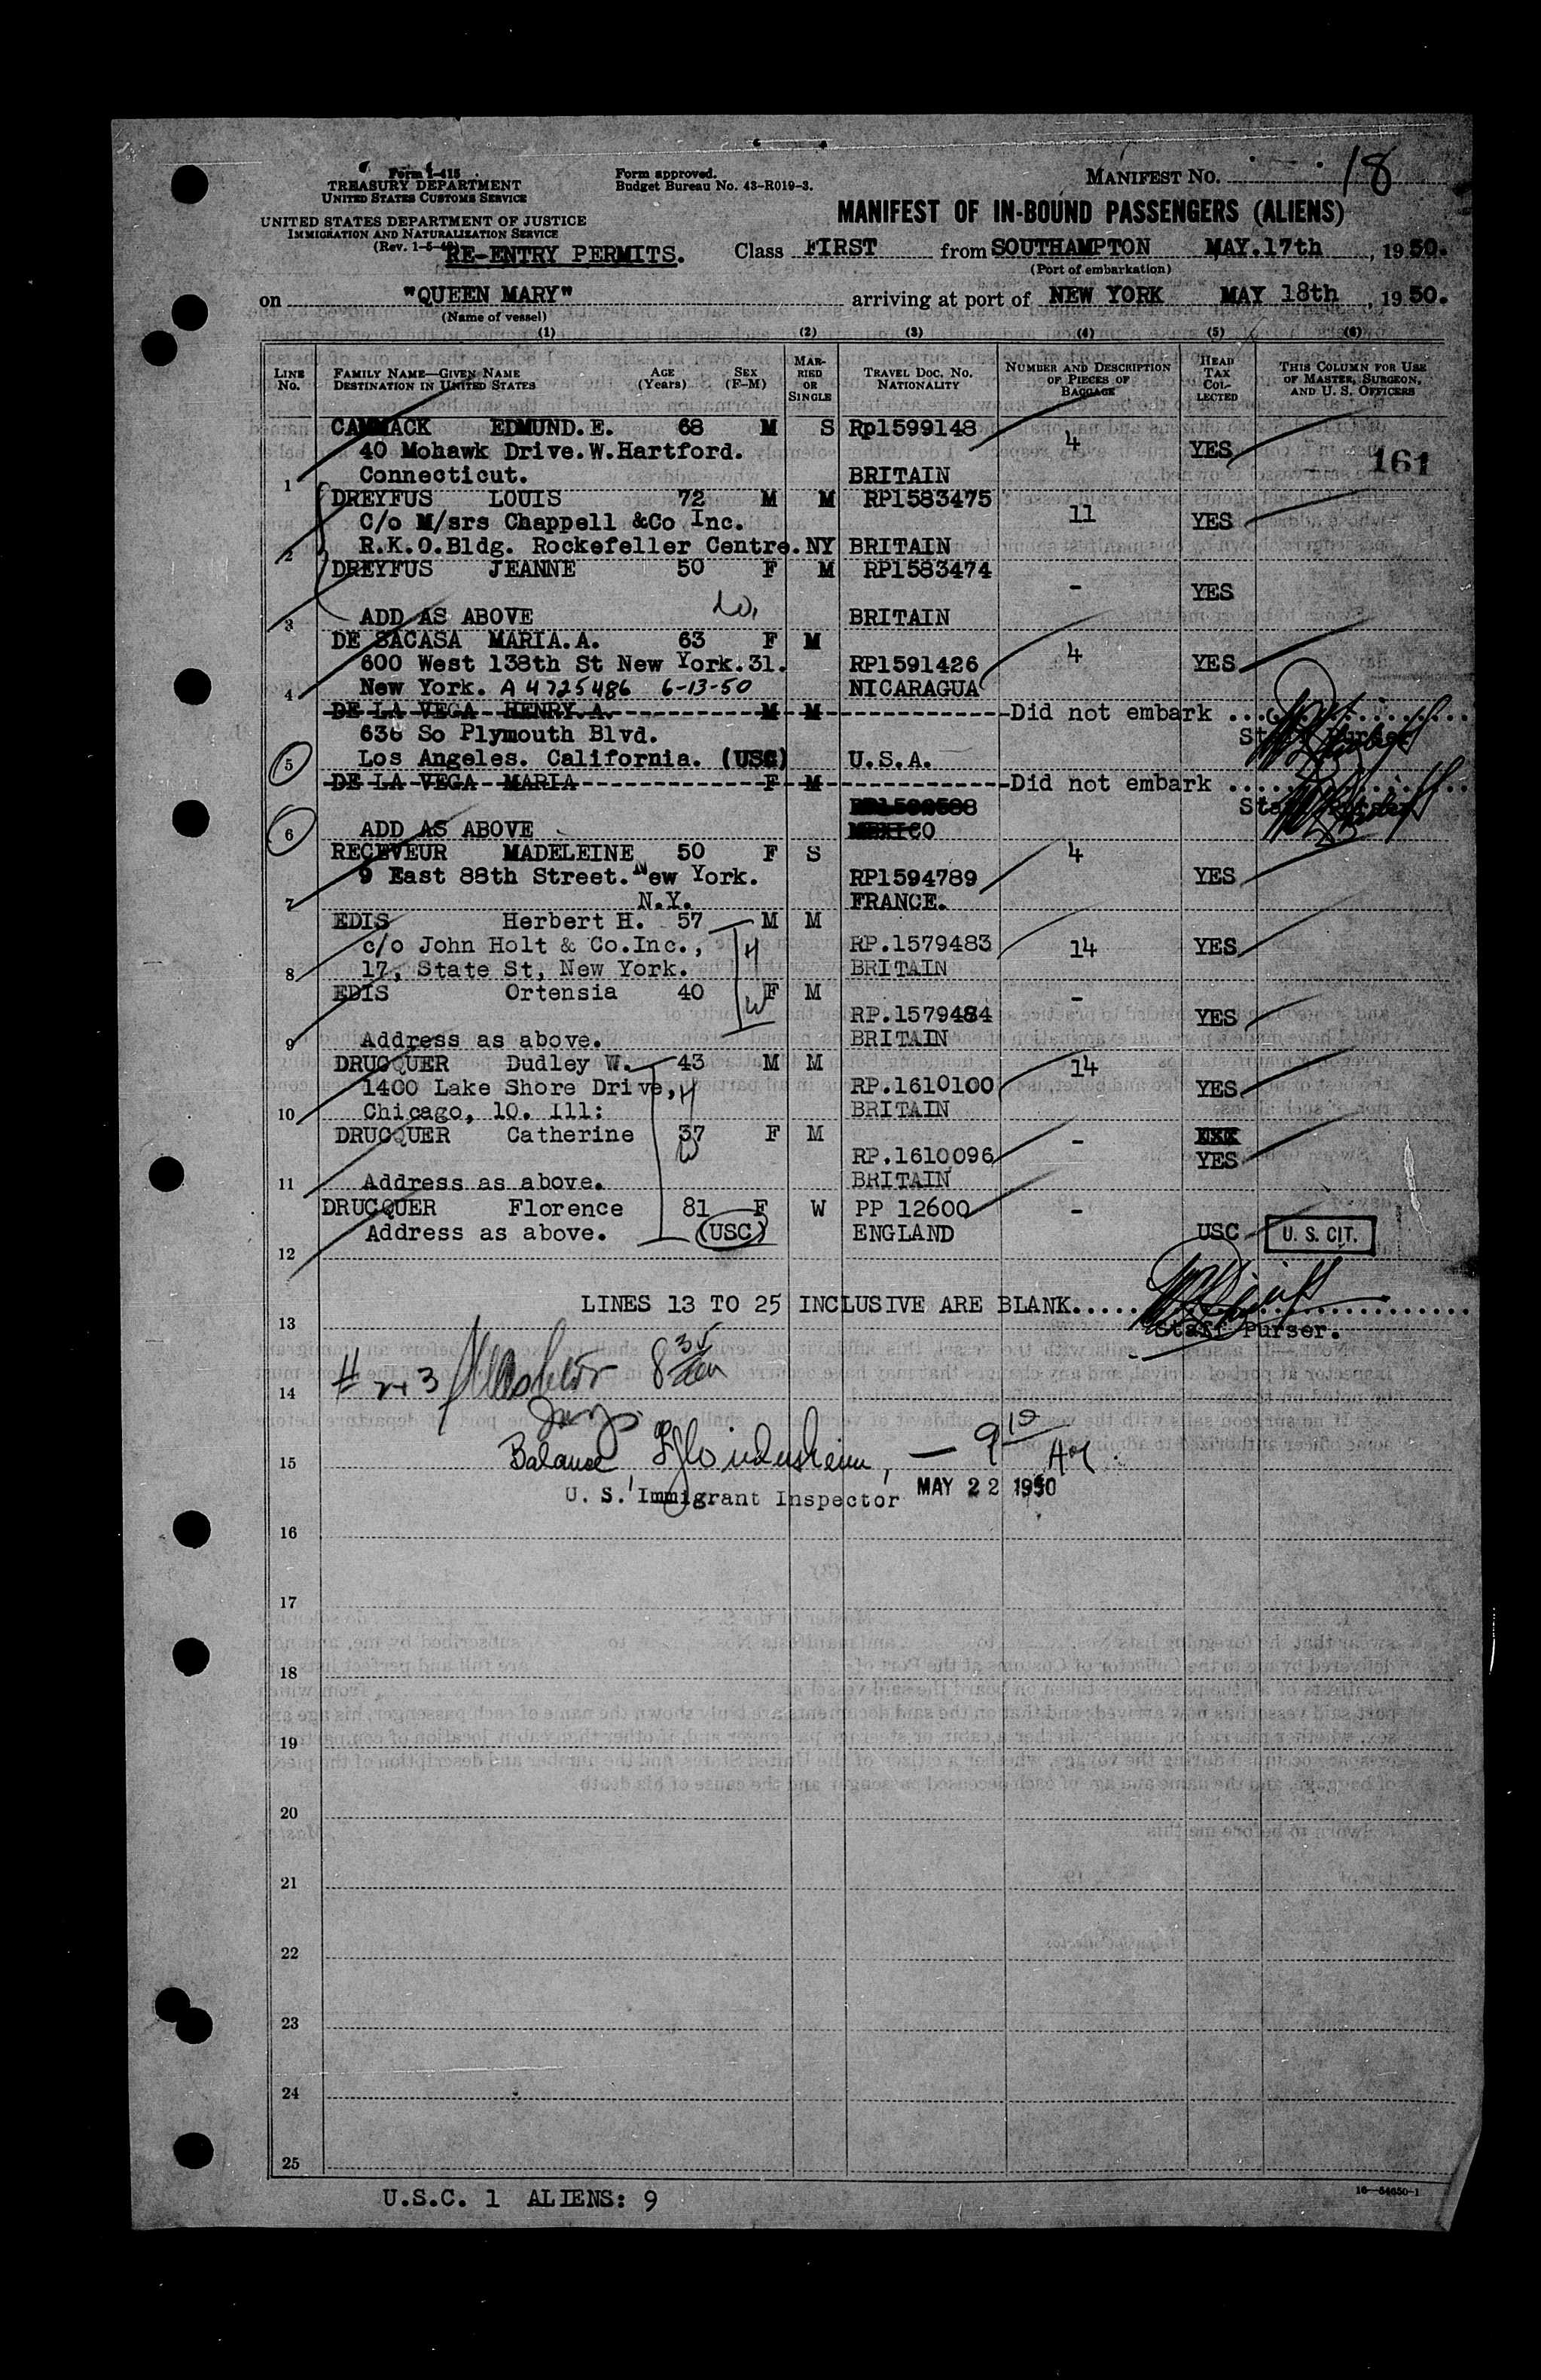 Form I-415
TREASURY DEPARTMENT
UNITED STATES CUSTOMS SERVICE
UNITED STATES DEPARTMENT OF JUSTICE
IMMIGRATION AND NATURALIZATION SERVICE
(Rev. 1-5-49)
Form approved.
Budget Bureau No. 43-R019-3.
MANIFEST NO. 18
MANIFEST OF IN-BOUND PASSENGERS (ALIENS)
RE-ENTRY PERMITS. Class FIRST from SOUTHAMPTON MAY.17th, 1950.
(Port of embarkation)
on "QUEEN MARY" arriving at port of NEW YORK MAY 18th, 1950.
(Name of vessel)
(1) (2) (3) (4) (5) (6)
LINE No. FAMILY NAME—GIVEN NAME DESTINATION IN UNITED STATES AGE (Years) SEX (F-M) MARRIED OR SINGLE TRAVEL DOC. NO. NATIONALITY NUMBER AND DESCRIPTION OF PIECES OF BAGGAGE HEAD TAX COLLECTED THIS COLUMN FOR USE OF MASTER, SURGEON, AND U. S. OFFICERS
CAMMACK EDMUND.E. 68 M S Rp1599148 4 YES
40 Mohawk Drive.W.Hartford. 161
1 Connecticut. BRITAIN
DREYFUS LOUIS 72 M M RP1583475 11 YES
C/o M/srs Chappell &Co Inc.
2 R.K.O.Bldg. Rockefeller Centre.NY BRITAIN
DREYFUS JEANNE 50 F M RP1583474 - YES
3 ADD AS ABOVE BRITAIN
DE SACASA MARIA.A. 63 F M 4
600 West 138th St New York.31. RP1591426 YES
4 New York. A4725486 6-13-50 NICARAGUA
DE LA VEGA HENRY.A. M M Did not embark
636 So Plymouth Blvd. Staff Purser
5 Los Angeles. California. (USC) U.S.A.
DE LA VEGA MARIA F M Did not embark
Staff Purser
6 ADD AS ABOVE MEXICO
RECEVEUR MADELEINE 50 F S 4
9 East 88th Street.New York. RP1594789 YES
7 N.Y. FRANCE.
EDIS Herbert H. 57 M M
c/o John Holt & Co.Inc., H RP.1579483 14 YES
8 17, State St, New York. BRITAIN
EDIS Ortensia 40 F M -
W RP.1579484 YES
9 Address as above. BRITAIN
DRUCQUER Dudley W. 43 M M 14
1400 Lake Shore Drive, H RP.1610100 YES
10 Chicago, 10. Ill: BRITAIN
DRUCQUER Catherine 37 F M -
W RP.1610096 YES
11 Address as above. BRITAIN
DRUCQUER Florence 81 F W PP 12600 -
Address as above. (USC) ENGLAND USC U. S. CIT.
12
LINES 13 TO 25 INCLUSIVE ARE BLANK
13 Staff Purser.
14
Balance 9 10 AM
15
U. S. Immigrant Inspector MAY 22 1950
16
17
18
19
20
21
22
23
24
25
U.S.C. 1 ALIENS: 9
16—54650-1